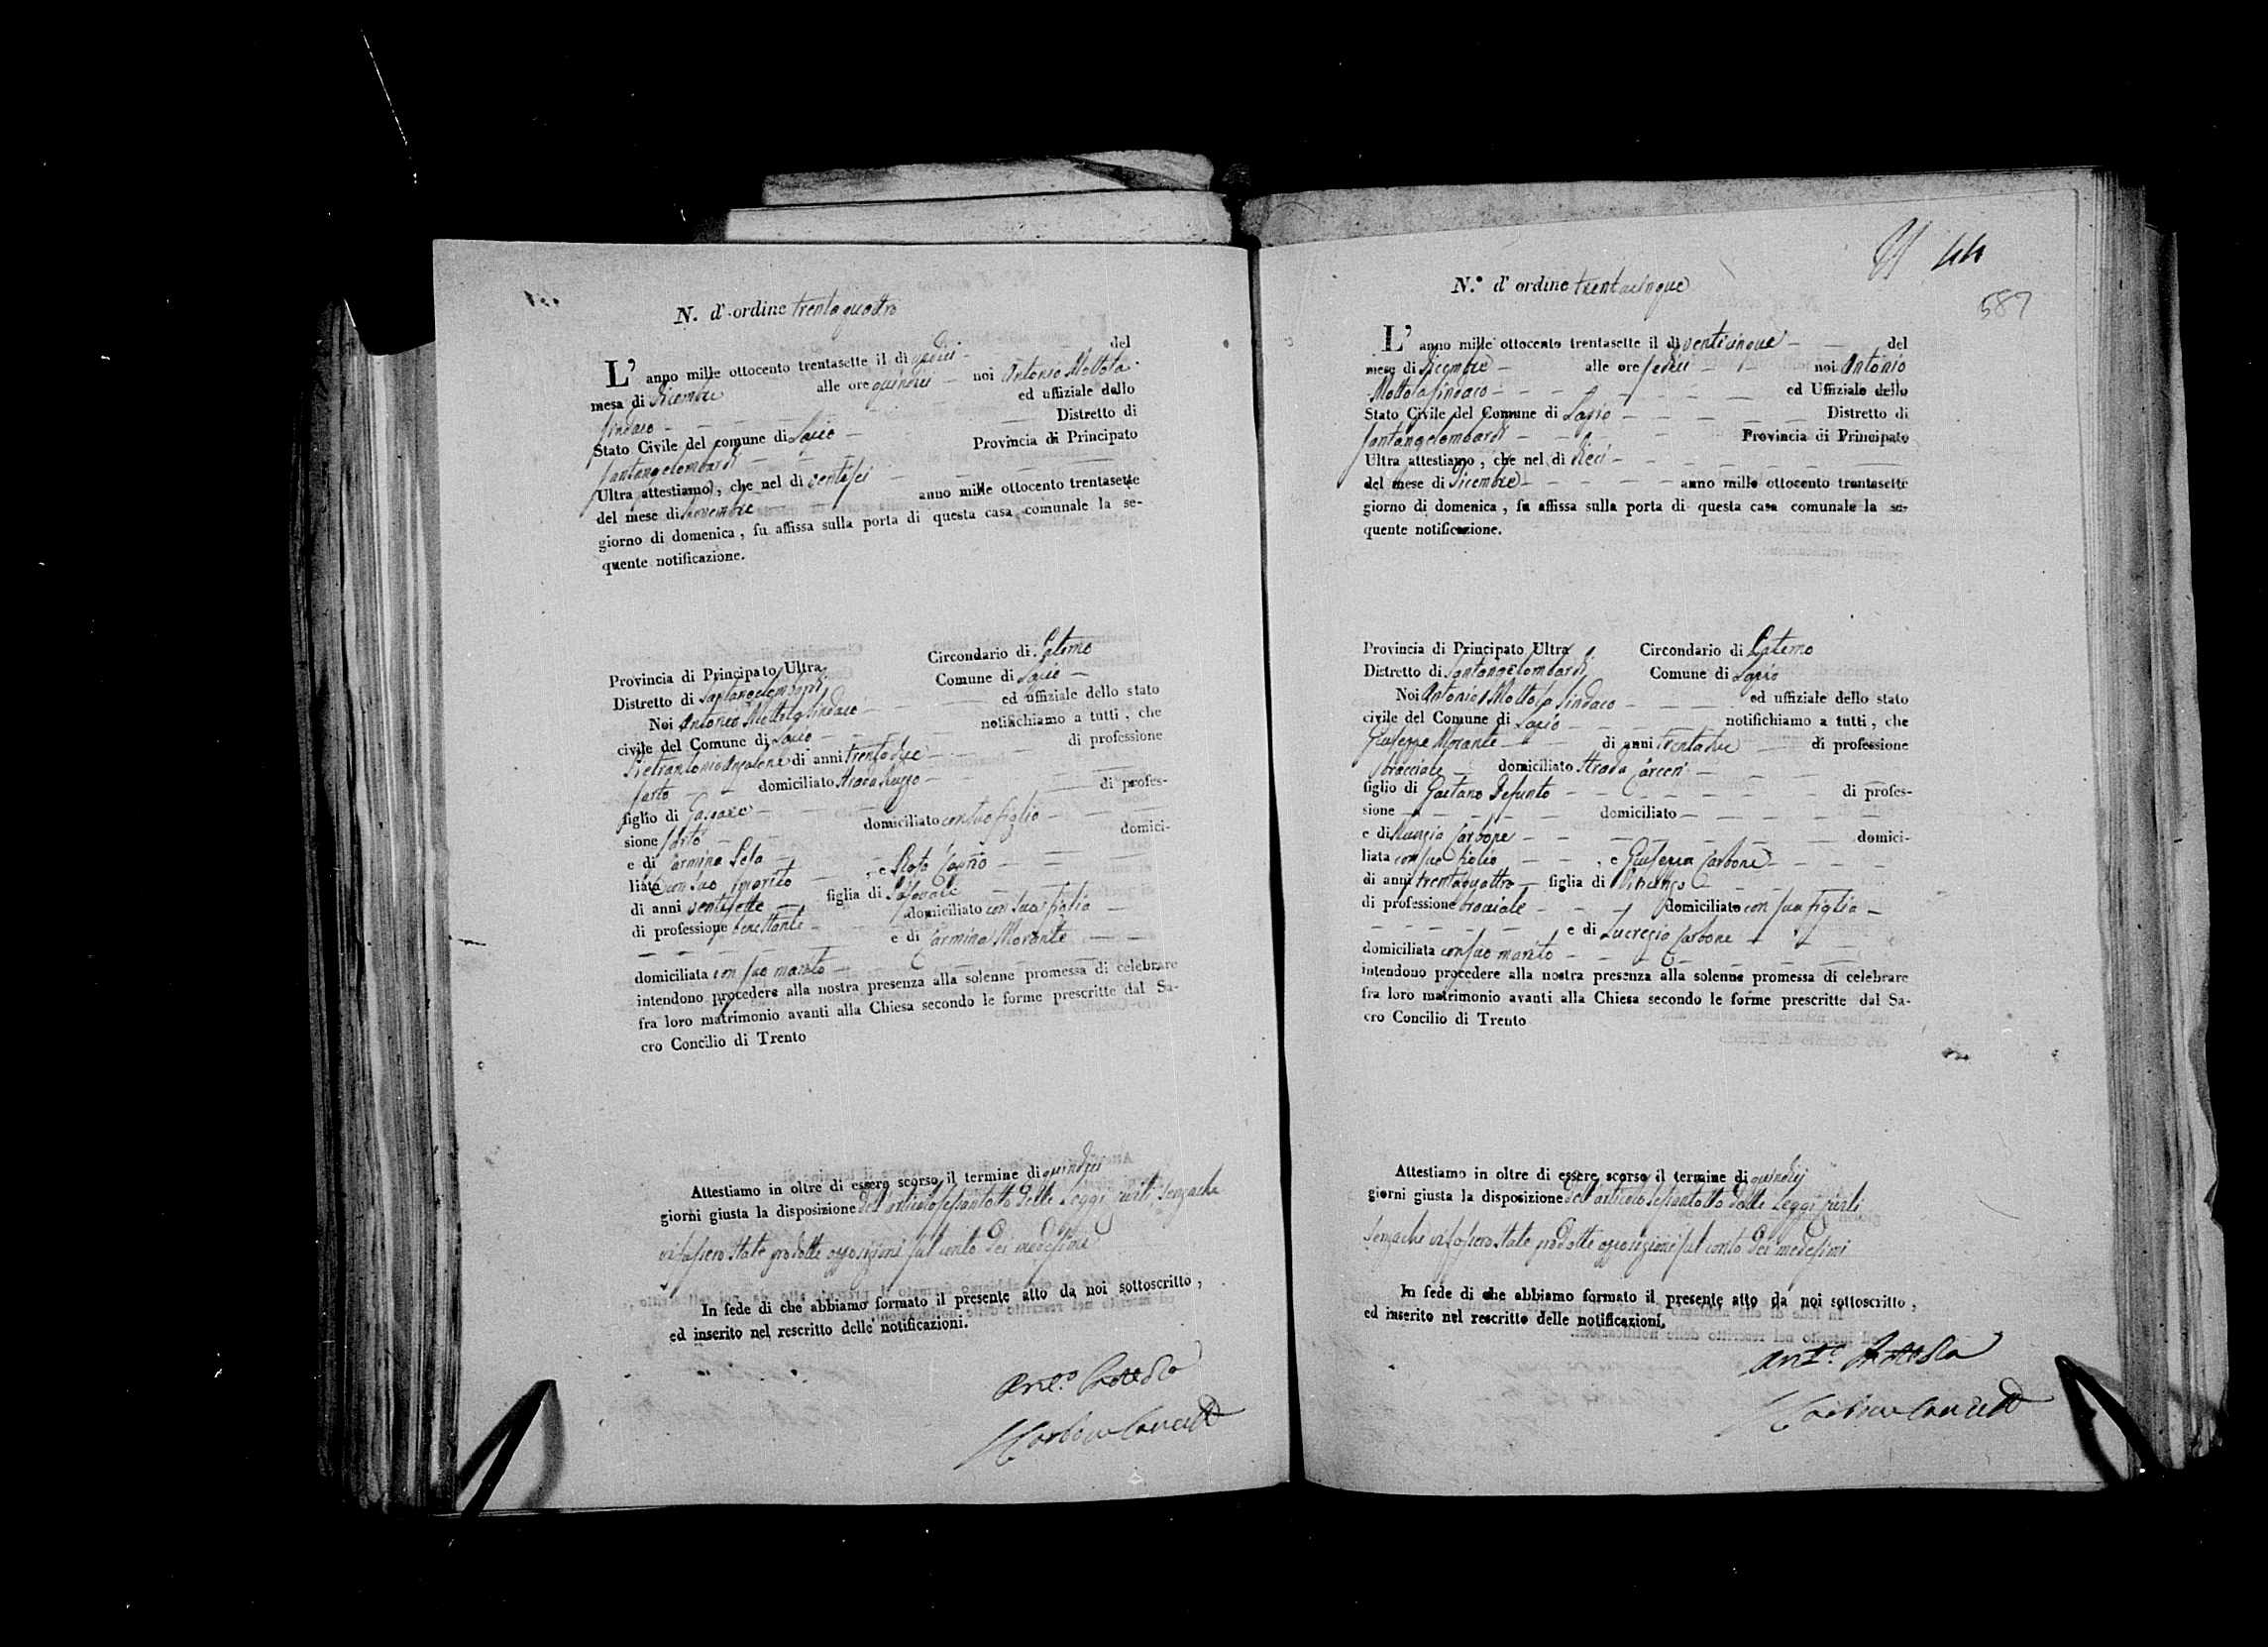 N. d'ordine trentaquattro
L' anno mille ottocento trentasette il dì del
mesa di Dicembre alle ore quindici noi Antonio Mottola
sindaco ed uffiziale dello
Stato Civile del comune di Lapio Distretto di
Santangelombardi Provincia di Principato
Ultra attestiamo, che nel dì ventisei
del mese di novembre anno mille ottocento trentasette
giorno di domenica, fu affissa sulla porta di questa casa comunale la se-
quente notificazione.
Provincia di Principato Ultra Circondario di Paterno
Distretto di Santangelombardi Comune di Lapio
Noi Antonio Mottola sindaco ed uffiziale dello stato
civile del Comune di Lapio notifichiamo a tutti, che
Pietrantonio di anni trentadue di professione
sarto domiciliato Strada
figlio di Gaspare di profes-
sione sarto domiciliato con suo figlio
e di Carmina domici-
liata con suo marito , e
di anni ventisette figlia di Pasquale
di professione domiciliato con sua figlia
e di Carmina Morante
domiciliata con suo marito
intendono procedere alla nostra presenza alla solenne promessa di celebrare
fra loro matrimonio avanti alla Chiesa secondo le forme prescritte dal Sa-
cro Concilio di Trento
Attestiamo in oltre di essere scorso il termine di quindici
giorni giusta la disposizione dell'articolo sessantotto delle Leggi civili senzache
vi fossero state prodotte opposizioni sul conto dei medesimi
In fede di che abbiamo formato il presente atto da noi sottoscritto,
ed inserito nel rescritto delle notificazioni.
Ant.o Mottola
44
N.º d' ordine trentacinque
587
L' anno mille ottocento trentasette il dì venticinque del
mese di Dicembre alle ore sedici noi Antonio
Mottola sindaco ed Uffiziale dello
Stato Civile del Comune di Lapio Distretto di
Santangelombardi Provincia di Principato
Ultra attestiamo, che nel dì dieci
del mese di Dicembre anno mille ottocento trentasette
giorno di domenica, fu affissa sulla porta di questa casa comunale la se-
quente notificazione.
Provincia di Principato Ultra Circondario di Paterno
Distretto di Santangelombardi Comune di Lapio
Noi Antonio Mottola sindaco ed uffiziale dello stato
civile del Comune di Lapio notifichiamo a tutti, che
Giuseppe Morante di anni trentadue di professione
bracciale domiciliato Strada Carceri
figlio di Gaetano Defunto di profes-
sione domiciliato
e di Nunzia Carbone domici-
liata con suo figlio , e Giuseppa Carbone
di anni trentaquattro figlia di Vincenzo
di professione bracciale domiciliato con sua figlia
e di Lucrezia Carbone
domiciliata con suo marito
intendono procedere alla nostra presenza alla solenne promessa di celebrare
fra loro matrimonio avanti alla Chiesa secondo le forme prescritte dal Sa-
cro Concilio di Trento
Attestiamo in oltre di essere scorso il termine di quindici
giorni giusta la disposizione dell'articolo sessantotto delle Leggi civili
senzache vi fossero state prodotte opposizioni sul conto dei medesimi
In fede di che abbiamo formato il presente atto da noi sottoscritto,
ed inserito nel rescritto delle notificazioni.
Ant.o Mottola